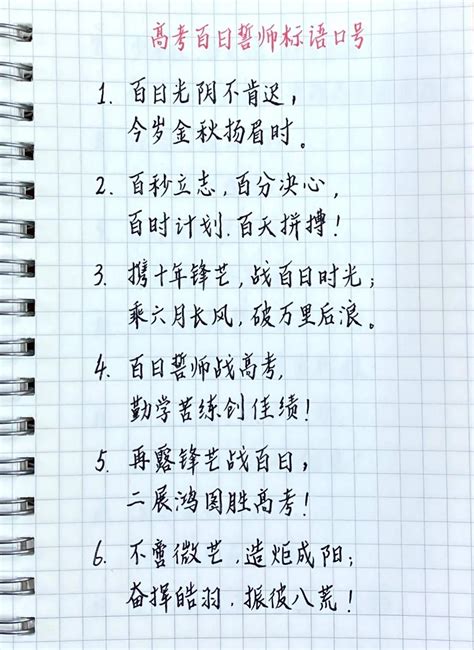 高考百日誓师标语口号
1. 百日光阴不肯迟，
今岁金秋扬眉时。
2. 百秒立志，百分决心，
百时计划.百天拼搏！
3. 携十年锋芒，战百日时光；
乘六月长风，破万里后浪。
4. 百日誓师战高考，
勤学苦练创佳绩！
5. 再露锋芒战百日，
二展鸿图胜高考！
6. 不啻微芒，造炬成阳；
奋挥皓羽.振彼八荒！